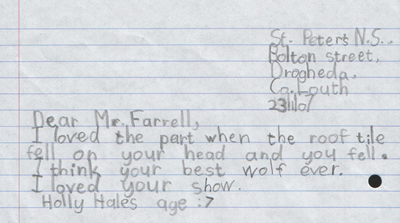 St. Peters N.S.,
Bolton street,
Drogheda,
Co. Louth
23/1/07
Dear Mr. Farrell,
I loved the part when the roof tile
fell on your head and you fell.
I think your best wolf ever.
I loved your show.
Holly Hales age :7